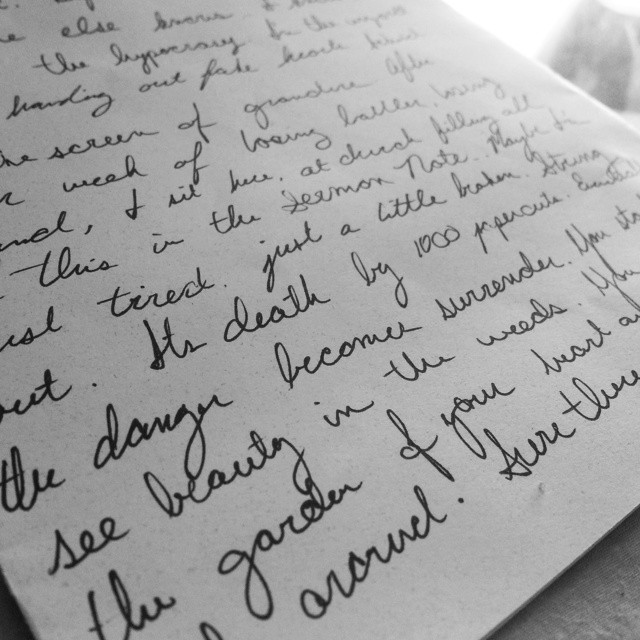 else knows
the hypocrisy in the
handing out fake
screen of grandeur after
week of losing battles, losing
and, I sit here, at church filling all
this in the Sermon Note. Maybe I'm
just tired. just a little broken. Strung
out. Its death by 1000 papercuts
the danger becomes surrender. You
see beauty in the weeds. You
the garden of your heart
around. Sure there